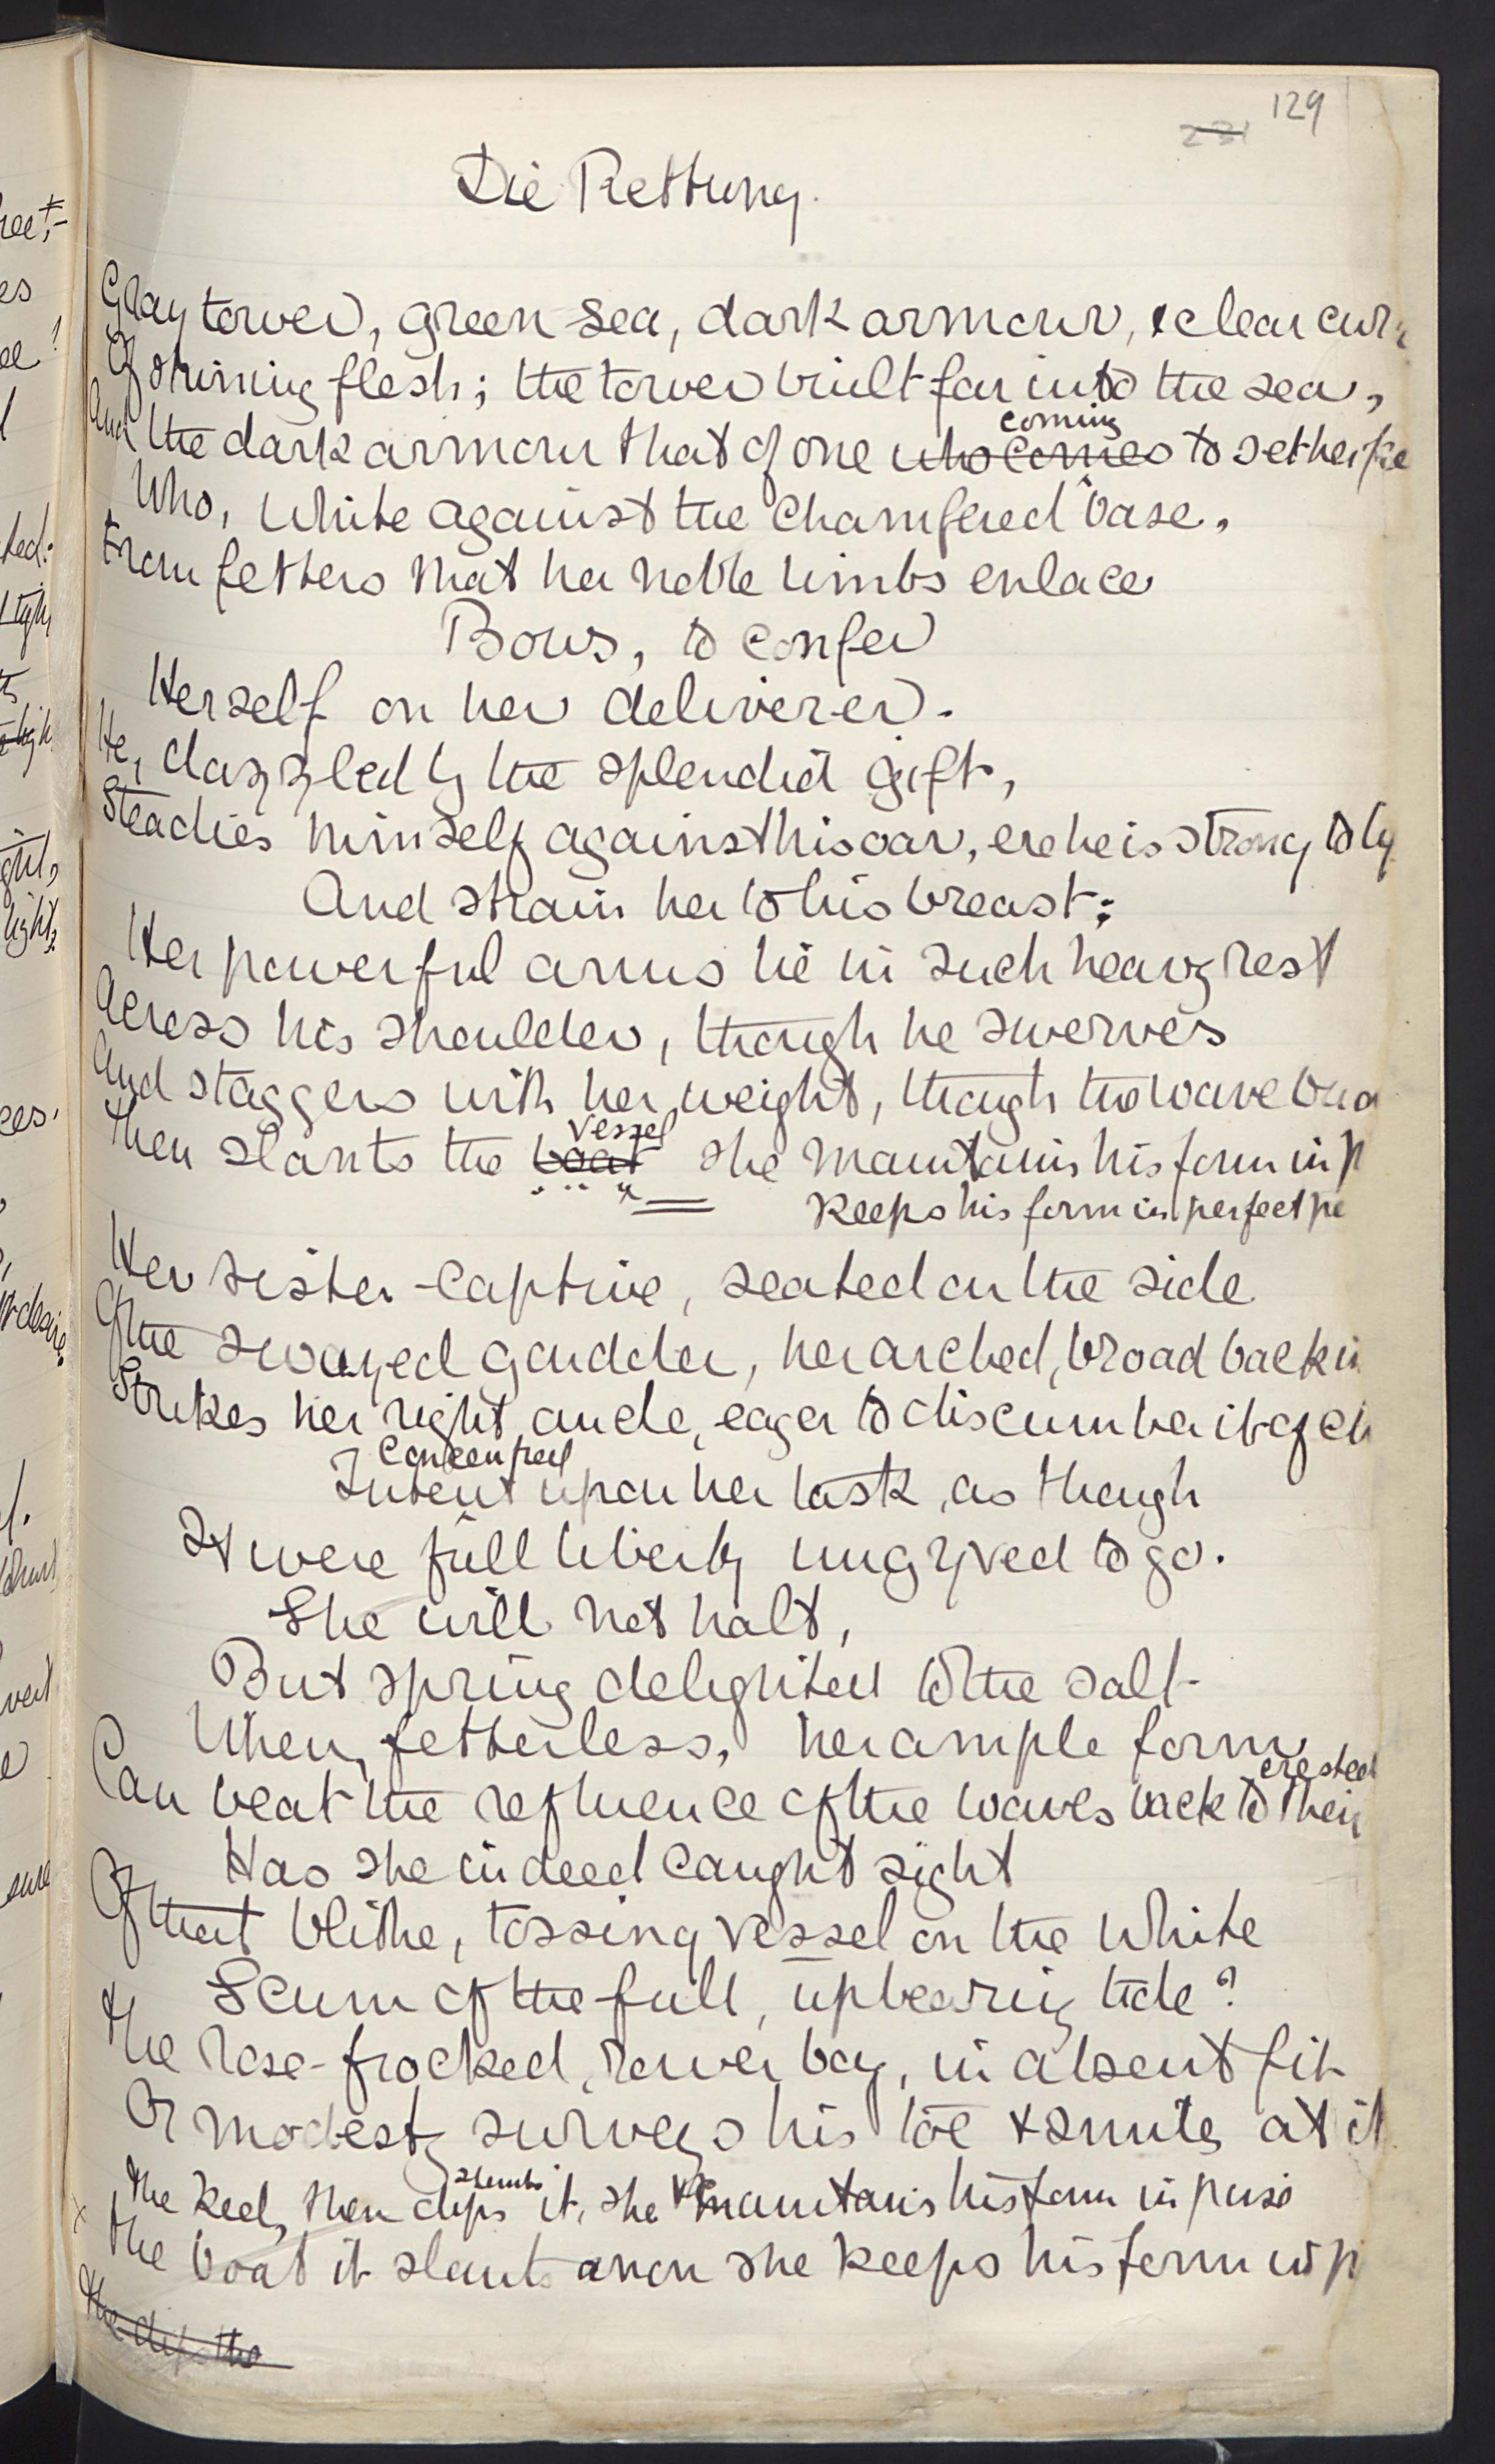 129
Die Rettung.
Gray tower, green sea, dark armour, & clear cur
Of shining flesh; the tower built far into the sea,
coming
And the dark armour that of one who comes to set her fre
Who, white against the chamfered base,
From fetters that her noble limbs enlace
Bows, to confer
Herself on her deliverer.
He, dazzled by the splendid gift,
Steadies himself against his oar, ere he is strong to ly
And strain her to his breast:
Her powerful arms lie in such heavy rest
Across his shoulder, though he swerves
And staggers with her weight, though the wave buo
vessel
Then slants the boat she maintains his form in p
keeps his form in perfect po
Her sister-captive, seated on the side
Of the swayed gondola, her arched, broad back in
Strikes her right ancle, eager to discumber it of ch
Intent upon her task, as though
It were full liberty ungyved to go.
She will not halt,
But spring delighted to the salt
When, fetterless, her ample form
crested
Can beat the refluence of the waves back to their
Has she indeed caught sight
Of that blithe, tossing vessel on the white
Scum of the full, upbearing tide?
The rose-frocked, rower boy, in absent fit
Or modesty surveys his toe & smiles at it
The keel, then dips it, she maintains his form in poise
The boat it slants anon she keeps his form in p